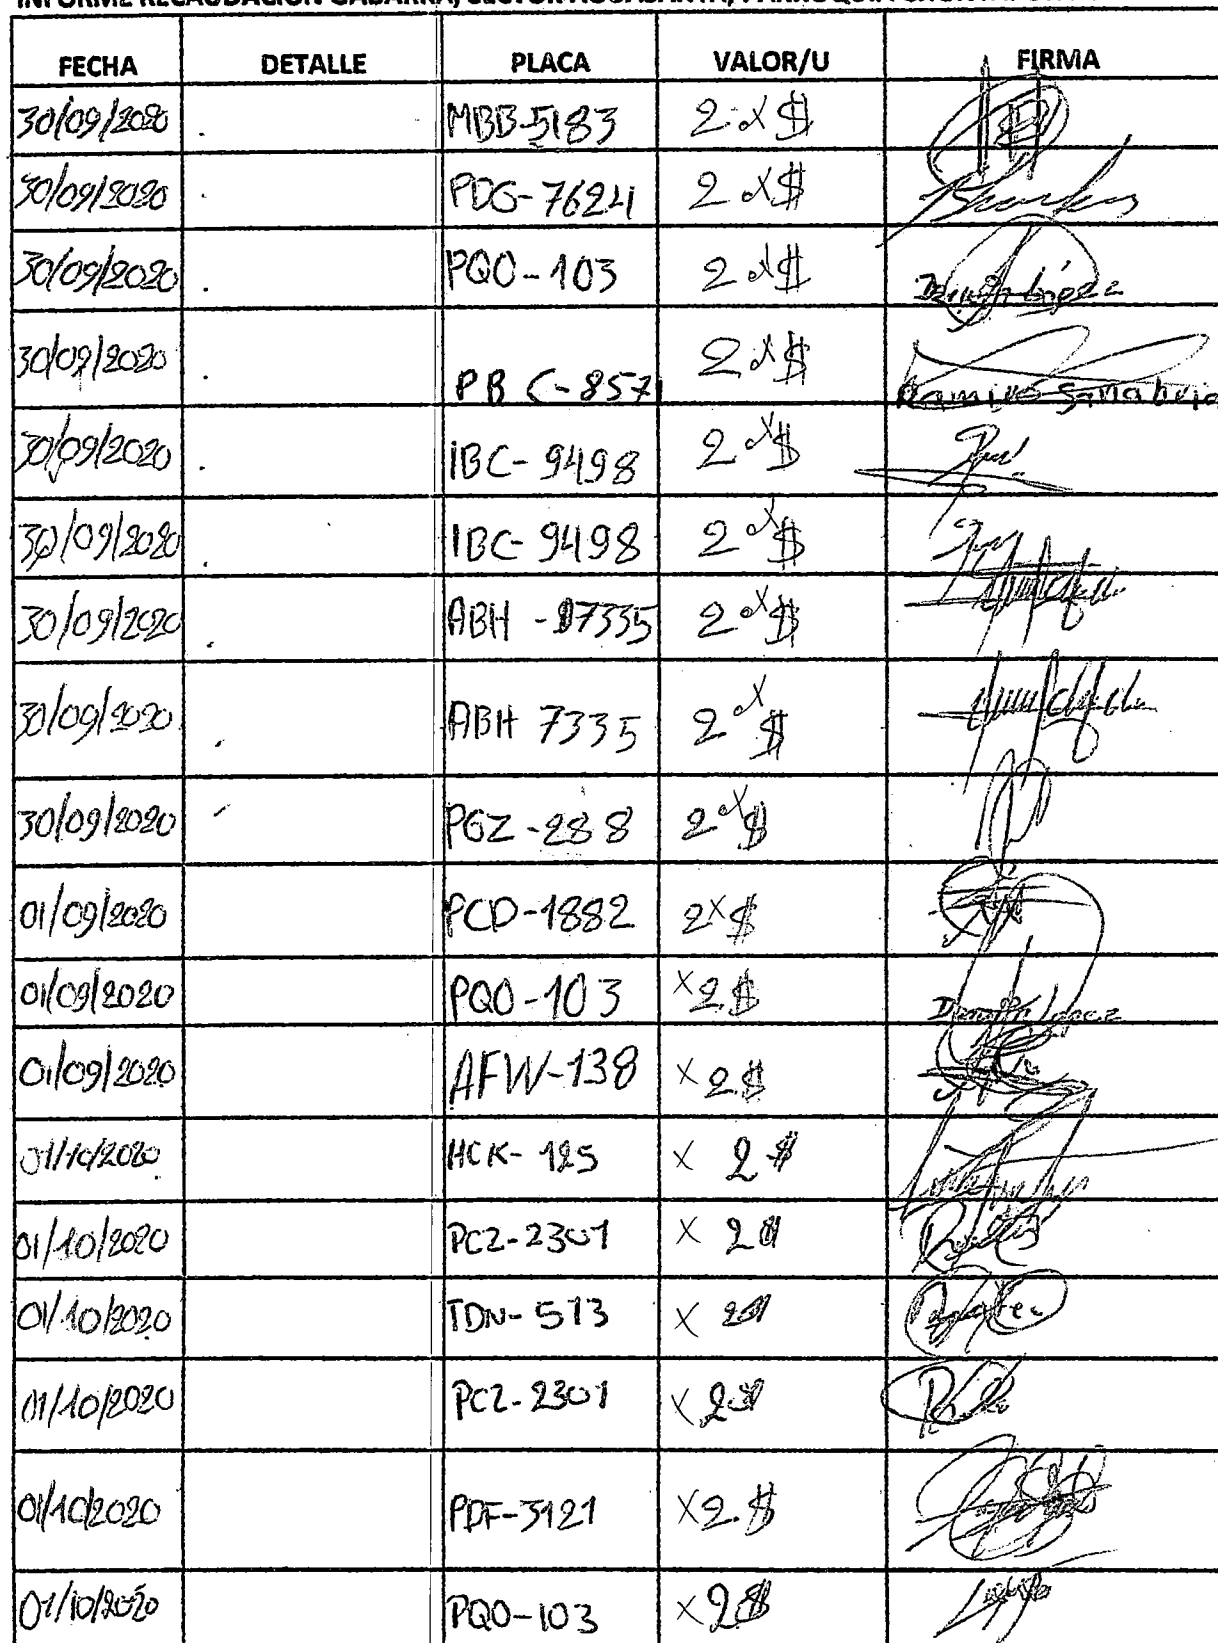 FECHA DETALLE PLACA VALOR/U FIRMA
30/09/2020 MBB-5183 2 x $
30/09/2020 PDG-7624 2 x $
30/09/2020 PQO-103 2 x $ López
30/09/2020 PBC-857 2 x $ Ramiro Sanabria
30/09/2020 IBC-9498 2 x $
30/09/2020 IBC-9498 2 x $
30/09/2020 ABH-7335 2 x $
30/09/2020 ABH 7335 2 x $
30/09/2020 PGZ-288 2 x $
01/09/2020 PCD-1882 2 x $
01/09/2020 PQO-103 x 2 $
01/09/2020 AFW-138 x 2 $
01/10/2020 HCK-125 x 2 $
01/10/2020 PCZ-2301 x 2 $
01/10/2020 TDN-513 x 2 $
01/10/2020 PCZ-2301 x 2 $
01/10/2020 PDF-3121 x 2. $
01/10/2020 PQO-103 x 2 $